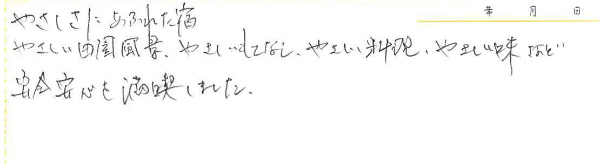 やさしさにあふれた宿
年 月 日
やさしい田園風景、やさしいもてなし、やさしい料理、やさしい味など
安全安心を満喫しました。